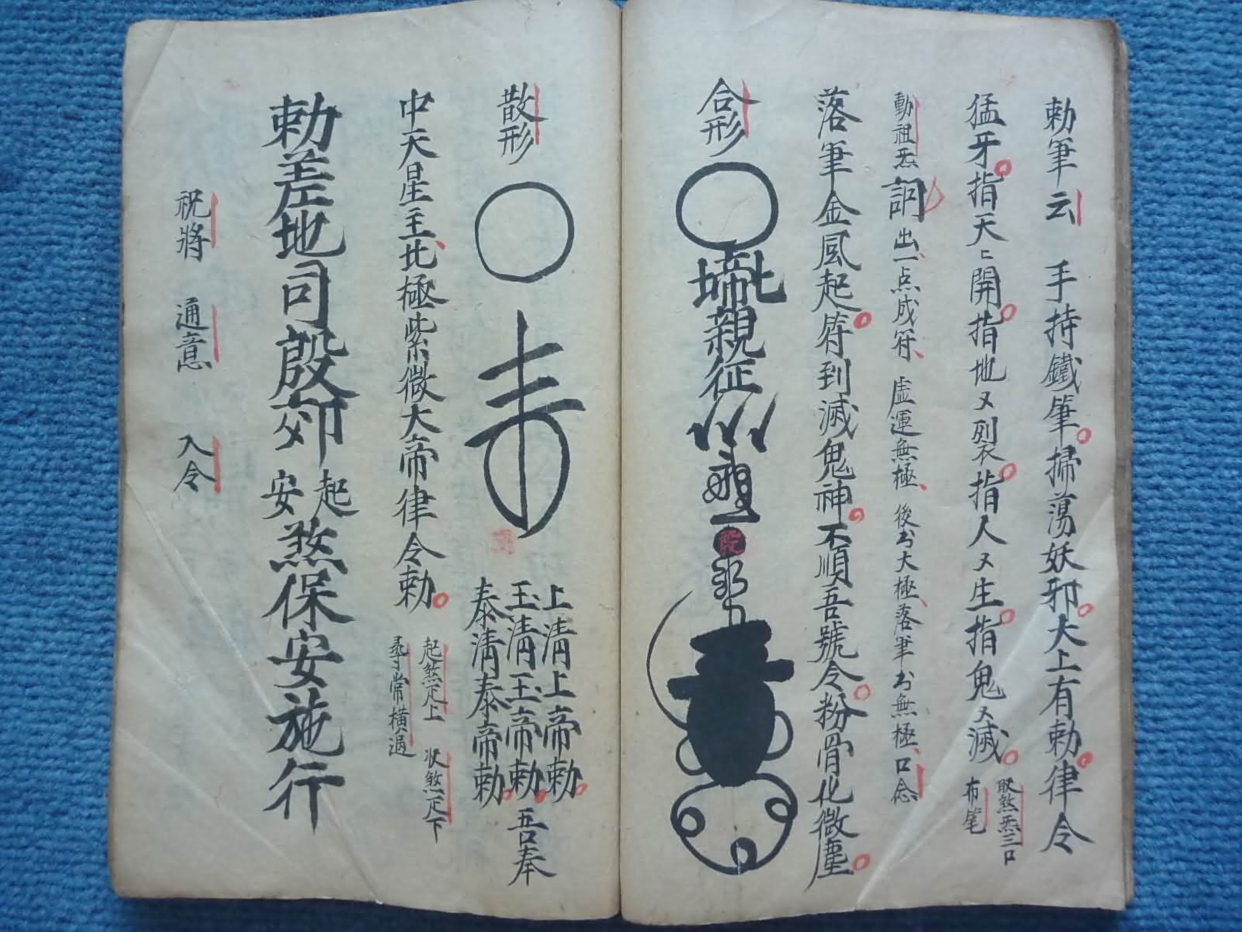 勅筆云 手持鐵筆掃蕩妖邪大上有勅律令
猛牙指天〻開指地又列指人又生指鬼又滅
取煞炁三口
布筆
動祖炁 詞出一点成符 虛運無極 後为大極落筆为無極 口念
落筆金風起符到滅鬼神不順吾號令粉骨化微塵
合形
親征
散形
上清上帝勅
玉清玉帝勅 吾奉
泰清泰帝勅
中天星主北極紫微大帝律令勅
起煞疋上 收煞疋下
尋常橫過
勅差地司殷郊起安煞保安施行
祝將 通意 入令